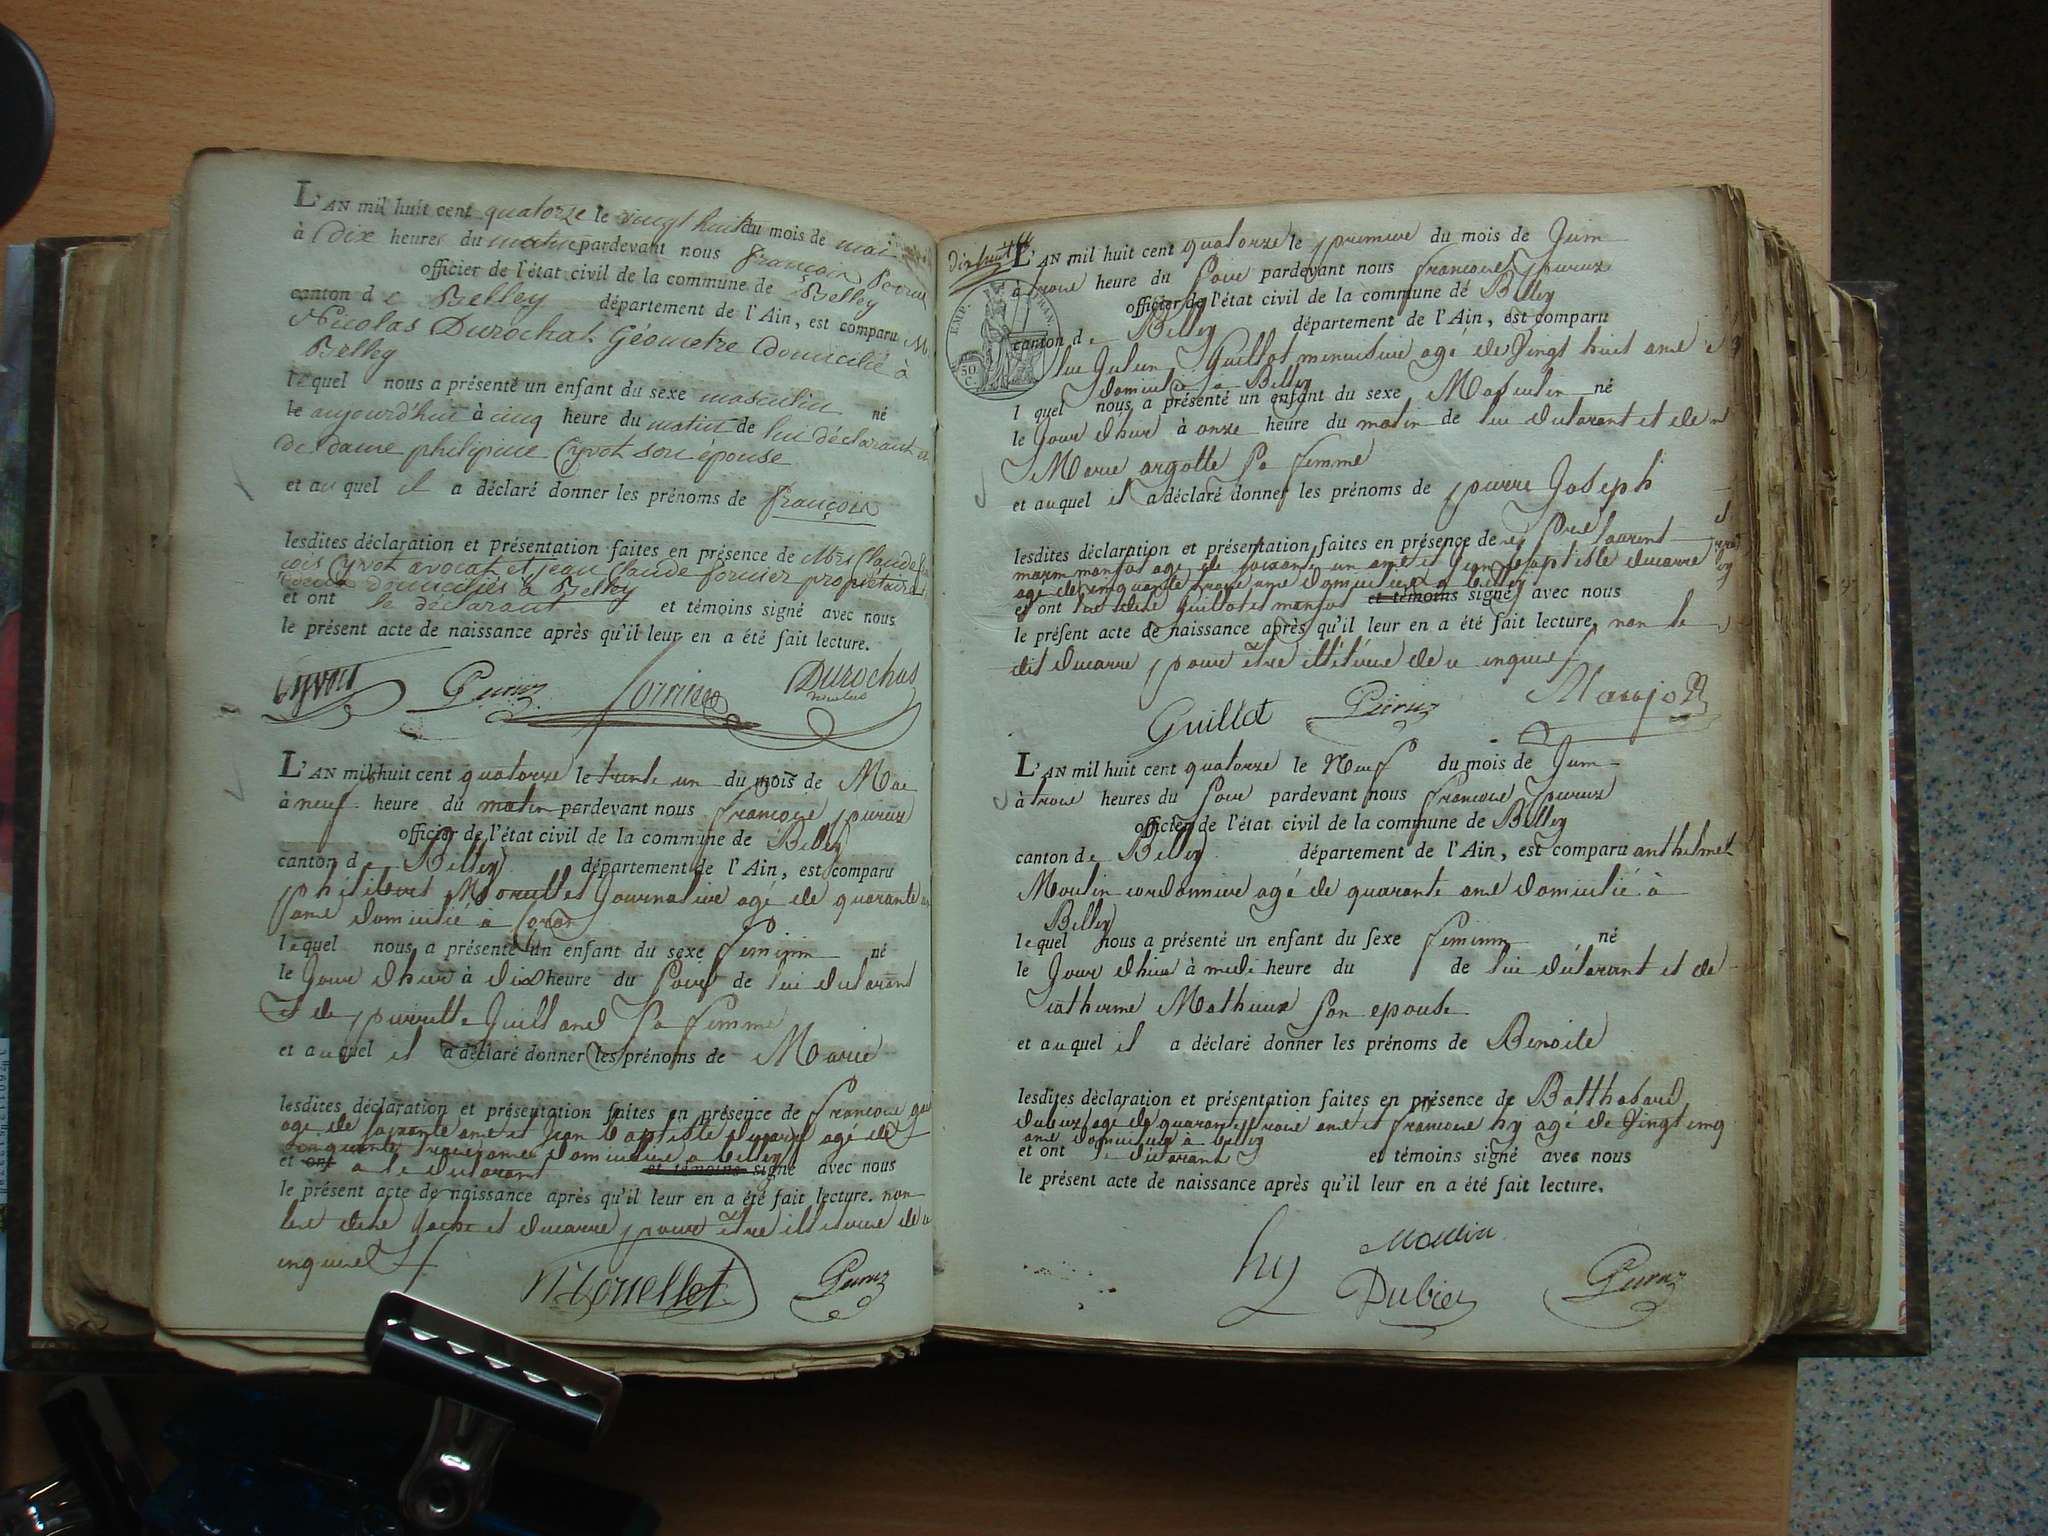 L'AN mil huit cent quatorze le vingt huit du mois de mai
à dix heures du matin pardevant nous françois Perrux
officier de l'état civil de la commune de Belley
canton de Belley département de l'Ain, est comparu M
Nicolas Durochat Géometre domicilié à
Belley
lequel nous a présenté un enfant du sexe masculin né
le aujourd'hui à cinq heure du matin de lui déclarant et
de dame philipine Cyvot son épouse
et auquel il a déclaré donner les prénoms de françois
lesdites déclaration et présentation faites en présence de Mrs Claude
Cyvot avocat et jean Claude fornier propriétaire
domiciliés à Belley
et ont le déclarant et témoins signé avec nous
le présent acte de naissance après qu'il leur en a été fait lecture.
Cyvot Peruz fornier Durochat
nicolas
L'AN mil huit cent quatorze le trente un du mois de Mae
à neuf heure du matin pardevant nous francois peruz
officier de l'état civil de la commune de Belley
canton de Belley département de l'Ain, est comparu
philibert Morellet Journalier agé de quarante
ans domicilié a
lequel nous a présenté un enfant du sexe feminin né
le Jour dhier à dix heure du Soir de lui declarant
et de pierrette Juilland Sa femme
et auquel il a déclaré donner les prénoms de Marie
lesdites déclaration et présentation faites en présence de francois
age de soixante ans et Jean baptiste ducarre agé de
cinquante trois ans domicilies a belley
et ont a le declarant et témoins signé avec nous
le présent acte de naissance après qu'il leur en a été fait lecture. non
et ducarre pour etre illiteree de ce
inquiel
Morellet Peruz
Dix huit
EMP. FRAN.
50 C.
L'AN mil huit cent quatorze le premier du mois de Juin
à trois heure du Soir pardevant nous francois peruz
officier de l'état civil de la commune de Belley
canton de Belley département de l'Ain, est comparu
Guillot menuisier age de Vingt huit ans
domicilié a Belley
l quel nous a présenté un enfant du sexe Masculin né
le Jour dhui à onze heure du matin de lui declarant et de
Marie argotte Sa femme
et auquel il a déclaré donner les prénoms de pierre Joseph
lesdites déclaration et présentation faites en présence de laurent
age de soixante un ans et Jean baptiste ducarre
age de cinquante trois ans domicilies a belley
et ont Guillot et et témoins signé avec nous
le présent acte de naissance après qu'il leur en a été fait lecture, non le
dit ducarre pour etre illiteree de ce inquiel
Guillot Peruz
L'AN mil huit cent quatorze le Neuf du mois de Juin
à trois heures du Soir pardevant nous francois peruz
officier de l'état civil de la commune de Belley
canton de Belley département de l'Ain, est comparu anthelmet
Moulin cordonnier agé de quarante ans domicilié à
Belley
lequel nous a présenté un enfant du sexe feminin né
le Jour dhier à midi heure du de lui declarant et de
catherine Mathieux son epouse
et auquel il a déclaré donner les prénoms de Benoite
lesdites déclaration et présentation faites en présence de Balthasard
agé de quarante trois ans et francois hy agé de Vingt cinq
ans domicilies à belley
et ont le declarant et témoins signé avec nous
le présent acte de naissance après qu'il leur en a été fait lecture.
hy Moulin
Dubiez Peruz